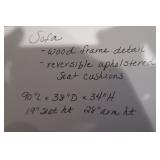 Sofa
- wood frame detail
- reversible upholstered
seat cushions
90"L x 38"D x 34"H
19" seat ht 28" arm ht